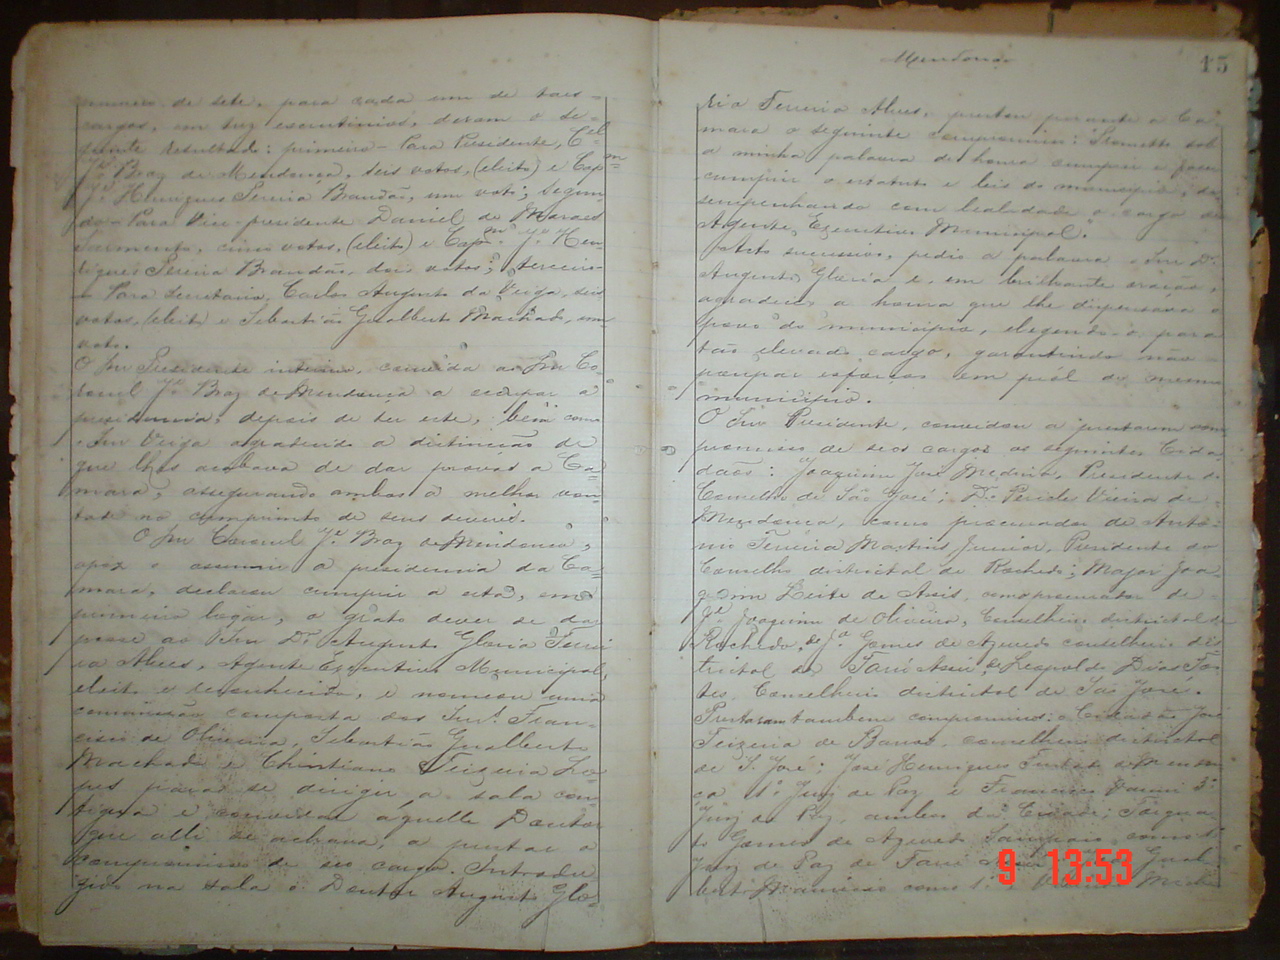 numero de sete, para cada um de taes
cargos, em tres escrutinios, deram o se-
guinte resultado: primeiro - Para Presidente, Cel
Je Braz de Mendonça, seis votos, (eleito) e Capm
Je Henriques Pereira Brandão, um voto; segun-
do - Para Vice-presidente Daniel de Moraes
Sarmento, cinco votos, (eleito) e Capm Je Hen-
riques Pereira Brandão, dois votos; terceiro
- Para Secretario, Carlos Augusto da Veiga, seis
votos, (eleito) e Sebastião Gualberto Machado, um
voto.
O Snr Presidente interino, convida ao Snr Co-
ronel Je Braz de Mendonça a occupar a
presidencia, depois de ter este, bem como
o Snr Veiga agradecido a distincção de
que lhes acabava de dar provas a Ca-
mara, assegurando ambos a melhor von-
tade no cumprimento de seus deveres.
O Snr Coronel Je Braz de Mendonça,
apoz assumir a presidencia da Ca-
mara, declarou cumprir a esta, em
primeiro logar, o grato dever de dar
posse ao Dr Augusto Gloria Ferrei
ra Alves, Agente Executivo Municipal,
eleito e reconhecido, e nomeou uma
commissão composta dos Snrs Fran-
cisco de Oliveira, Sebastião Gualberto
Machado e Christiano Teixeira Lo-
pes para se dirigir a sala con-
tigua e convidar aquelle Doutor
que alli se achava, a prestar o
compromisso de seu cargo. Introdu-
zido na sala o Doutor Augusto Glo-
Mendonça
15
ria Ferreira Alves, prestou perante a Ca-
mara o seguinte compromisso: "Prometto sob
a minha palavra de honra cumprir e fazer
cumprir o estatuto e leis do municipio, de-
sempenhando com lealdade o cargo de
Agente Executivo Municipal."
Acto successivo, pedio a palavra o Snr Dr
Augusto Gloria e, em brilhante oração,
agradeceu a honra que lhe dispensava o
povo do municipio, elegendo-o para
tão elevado cargo, garantindo não
poupar esforços em prol do mesmo
municipio.
O Snr Presidente, convidou a prestarem com-
promisso de seos cargos os seguintes Cida-
dãos: Joaquim José Medina, Presidente do
Conselho de São José; Dr Pericles Vieira de
Mendonça, como procurador de Anto-
nio Ferreira Martins Junior, Presidente do
Conselho districtal de Rochedo; Major Joa-
quim Leite de Assis, como procurador de
Je Joaquim de Oliveira, Conselheiro districtal de
Rochedo, de Je Gomes de Azevedo conselheiro dis-
trictal de Tarú-Assú, de Leopoldo Dias For-
tes, Conselheiro districtal de São José.
Prestaram tambem compromisso: o Cidadão José
Teixeira de Barros, conselheiro districtal
de S. José; José Henriques Furtado de Mendon-
ça 1º Juiz de Paz e Francisco 3º
Juiz de Paz, ambos da Cidade;
Gomes de Azevedo Sampaio como 1º
Juiz de Paz de Tarú
como 1º
9 13:53